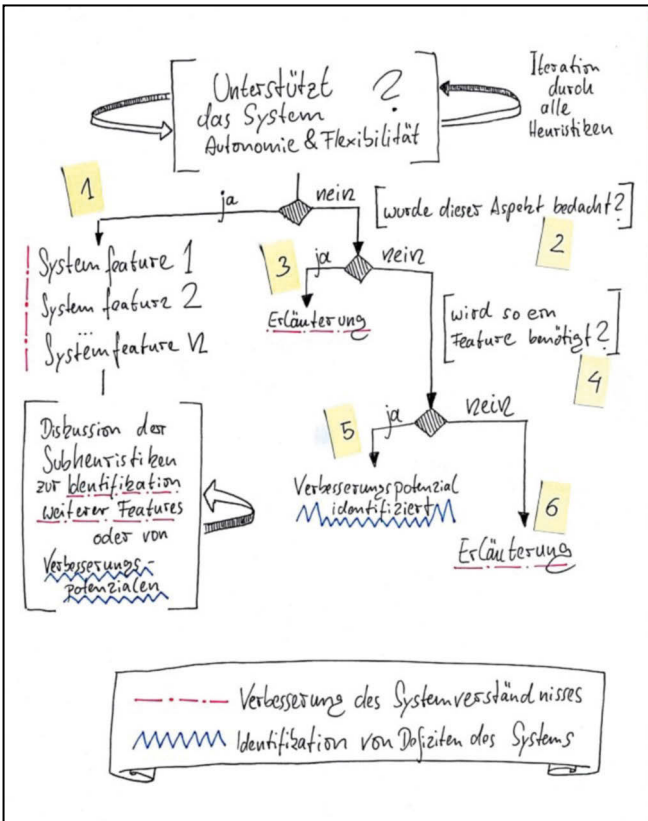 Unterstützt ?
das System
Autonomie & Flexibilität
Iteration
durch
alle
Heuristiken
1
ja
nein
[wurde dieser Aspekt bedacht?]
2
System feature 1
System feature 2
...
System feature n
3
ja
nein
Erläuterung
[wird so ein
Feature benötigt?]
4
5
ja
nein
Diskussion der
Subheuristiken
zur Identifikation
weiterer Features
oder von
Verbesserungs-
potenzialen
Verbesserungspotenzial
identifiziert
6
Erläuterung
Verbesserung des Systemverständnisses
Identifikation von Defiziten des Systems